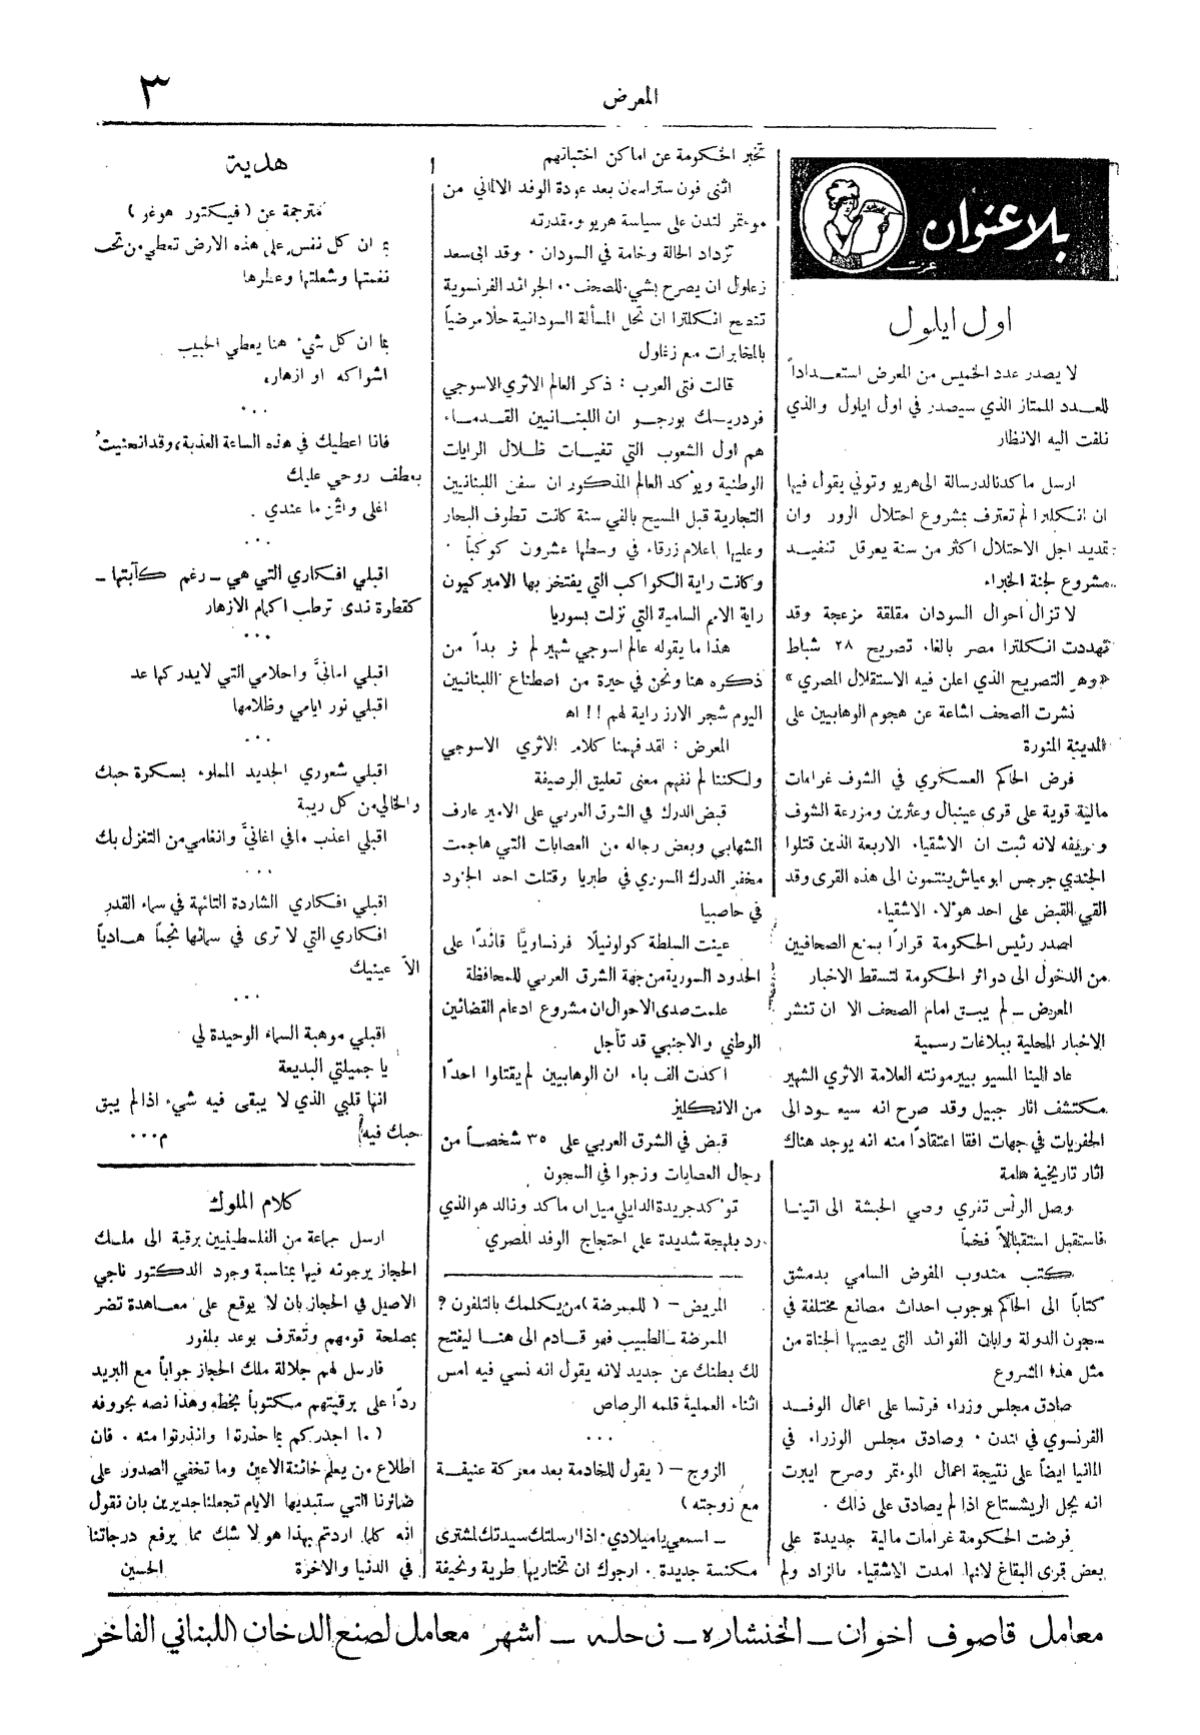 ٣
المعرض
بلا عنوان
عزت
اول ايلول
لا يصدر عدد الخميس من المعرض استعداداً
للعدد الممتاز الذي سيصدر في اول ايلول والذي
نلفت اليه الانظار
ارسل ماكدنالد رسالة الى هريو وتوني يقول فيها
ان انكلترا لم تعترف بمشروع احتلال الرور وان
تمديد اجل الاحتلال اكثر من سنة يعرقل تنفيذ
مشروع لجنة الخبراء
لا تزال احوال السودان مقلقة مزعجة وقد
تهددت انكلترا مصر بالغاء تصريح ٢٨ شباط
«وهو التصريح الذي اعلن فيه الاستقلال المصري»
نشرت الصحف اشاعة عن هجوم الوهابيين على
المدينة المنورة
فرض الحاكم العسكري في الشوف غرامات
مالية قوية على قرى عينبال وعترين ومزرعة الشوف
وغريفه لانه ثبت ان الاشقياء الاربعة الذين قتلوا
الجندي جرجس ابو عياش ينتمون الى هذه القرى وقد
القي القبض على احد هولاء الاشقياء
اصدر رئيس الحكومة قراراً بمنع الصحافيين
من الدخول الى دوائر الحكومة لتسقط الاخبار
المعرض ــ لم يبق امام الصحف الا ان تنشر
الاخبار المحلية ببلاغات رسمية
عاد الينا المسيو بييرمونته العلامة الاثري الشهير
مكتشف اثار جبيل وقد صرح انه سيعود الى
الحفريات في جهات افقا اعتقاداً منه انه يوجد هناك
اثار تاريخية هامة
وصل الرأس تفري وصي الحبشة الى اتينا
فاستقبل استقبالاً فخماً
كتب مندوب المفوض السامي بدمشق
كتاباً الى الحاكم بوجوب احداث مصانع مختلفة في
سجون الدولة وابان الفوائد التى يصيبها الجناة من
مثل هذا المشروع
صادق مجلس وزراء فرنسا على اعمال الوفد
الفرنسوي في لندن . وصادق مجلس الوزراء في
المانيا ايضاً على نتيجة اعمال الموءتمر وصرح ايبرت
انه يحل الريشستاغ اذا لم يصادق على ذلك .
فرضت الحكومة غرامات مالية جديدة على
بعض قرى البقاع لانها امدت الاشقياء بالزاد ولم
تخبر الحكومة عن اماكن اختبائهم
اثنى فون ستراسمان بعد عودة الوفد الالماني من
موءتمر لندن على سياسة هريو ومقدرته
تزداد الحالة وخامة في السودان . وقد ابى سعد
زغلول ان يصرح بشيء للصحف .. الجرائد الفرنسوية
تنصح انكلترا ان تحل المسألة السودانية حلا مرضياً
بالمخابرات مع زغلول
قالت فتى العرب : ذكر العالم الاثري الاسوجي
فردريك بورجو ان اللبنانيين القدماء
هم اول الشعوب التي تفيأت ظلال الرايات
الوطنية ويوءكد العالم المذكور ان سفن اللبنانيين
التجارية قبل المسيح بالفي سنة كانت تطوف البحار
وعليها اعلام زرقاء في وسطها عشرون كوكباً .
وكانت راية الكواكب التي يفتخر بها الاميركيون
راية الامم السامية التي نزلت بسوريا
هذا ما يقوله عالم اسوجي شهير لم نر بداً من
ذكره هنا ونحن في حيرة من اصطناع اللبنانيين
اليوم شجر الارز راية لهم !! اه
المعرض : لقد فهمنا كلام الاثري الاسوجي
ولكننا لم نفهم معنى تعليق الرصيفة
قبض الدرك في الشرق العربي على الامير عارف
الشهابي وبعض رجاله من العصابات التي هاجمت
مخفر الدرك السوري في طبريا وقتلت احد الجنود
في حاصبيا
عينت السلطة كولونيلا فرنساويّاً قائداً على
الحدود السورية من جهة الشرق العربي للمحافظة
علمت صدى الاحوال ان مشروع ادغام القضائين
الوطني والاجنبي قد تأجل
اكدت الف باء ان الوهابيين لم يقتلوا احداً
من الانكليز
قبض في الشرق العربي على ٣٥ شخصاً من
رجال العصابات وزجوا في السجون
توءكد جريدة الدايلي ميل ان ماكدونالد هو الذي
رد بلهجة شديدة على احتجاج الوفد المصري
المريض ــ ( للممرضة ) من يكلمك بالتلفون ؟
الممرضة ــ الطبيب فهو قادم الى هنا ليفتح
لك بطنك عن جديد لانه يقول انه نسي فيه امس
اثناء العملية قلمه الرصاص
...
الزوج ــ ( يقول للخادمة بعد معركة عنيفة
مع زوجته )
ــ اسمعي يا ميلادي . اذا ارسلتك سيدتك لمشترى
مكنسة جديدة . ارجوك ان تختاريها طرية ونحيفة
هدية
مترجمة عن ( فيكتور هوغو )
بما ان كل نفس على هذه الارض تعطي من تحب
نغمتها وشعلتها وعطرها
بما ان كل شيء هنا يعطي الحبيب
اشواكه او ازهاره
...
فانا اعطيك في هذه الساعة العذبة، وقد انحنيتُ
بعطف روحي عليك
اغلى واثمن ما عندي .
...
اقبلي افكاري التي هي ــ رغم كآبتها ــ
كقطرة ندى ترطب اكمام الازهار
...
اقبلي امانيَّ واحلامي التي لا يدركها عد
اقبلي نور ايامي وظلامها
...
اقبلي شعوري الجديد المملوء بسكرة حبك
والخالي من كل ريبة
اقبلي اعذب ما في اغانيَّ وانغامي من التغزل بك
...
اقبلي افكاري الشاردة التائهة في سماء القدر
افكاري التي لا ترى في سمائها نجماً هادياً
الاّ عينيك
...
اقبلي موهبة السماء الوحيدة لي
يا جميلتي البديعة
انها قلبي الذي لا يبقى فيه شيء اذا لم يبق
حبك فيه! م...
كلام الملوك
ارسل جماعة من الفلسطينيين برقية الى ملك
الحجاز يرجونه فيها بمناسبة وجود الدكتور ناجي
الاصيل في الحجاز بان لا يوقع على معاهدة تضر
بمصلحة قومهم وتعترف بوعد بلفور
فارسل لهم جلالة ملك الحجاز جواباً مع البريد
رداً على برقيتهم مكتوباً بخطه وهذا نصه بحروفه
( ما اجدركم بما حذرتم وانذرتوا منه . فان
اطلاع من يعلم خائنة الاعين وما تخفي الصدور على
ضمائرنا التي ستبديها الايام تجعلنا جديرين بان نقول
انه كلما اردتم بهذا هو لا شك مما يرفع درجاتنا
في الدنيا والاخرة الحسين
معامل قاصوف اخوان ــ الخنشاره ــ زحله ــ اشهر معامل لصنع الدخان اللبناني الفاخر